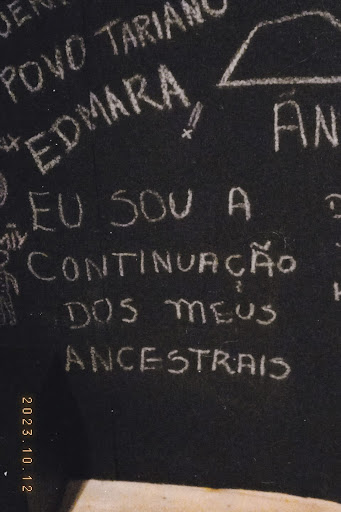 POVO TARIANO
EDMARA
EU SOU A
CONTINUAÇÃO
DOS MEUS
ANCESTRAIS
2023.10.12